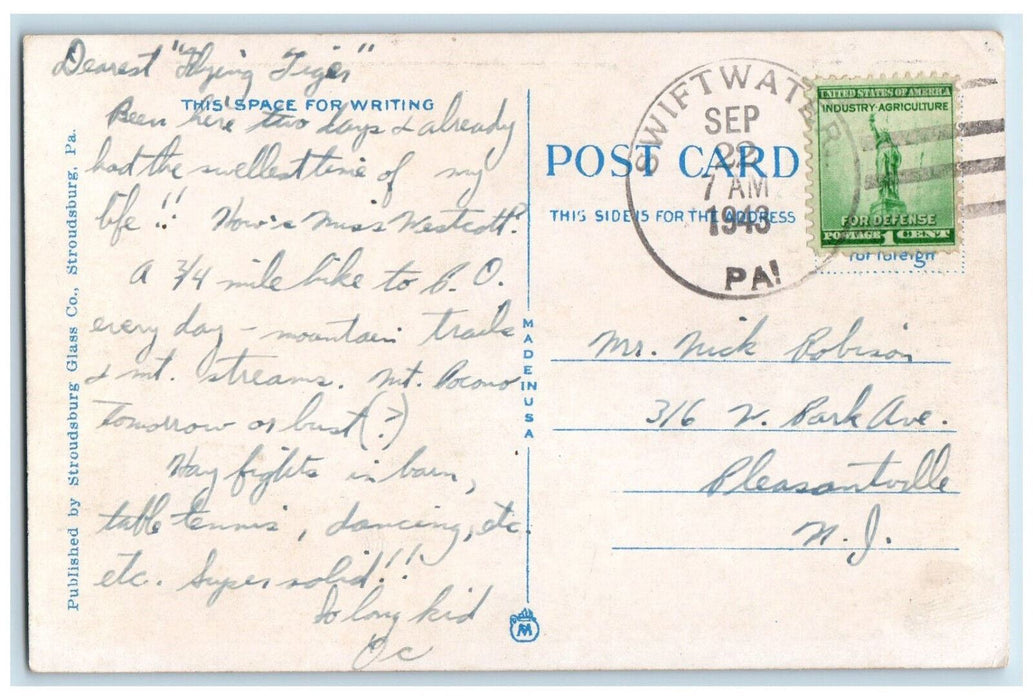 Dearest "Flying Tiger"
THIS SPACE FOR WRITING
Been here two days & already
had the swellest time of my
life!! How's Miss Westcott?
A 3/4 mile hike to P.O.
every day - mountain trails
& mt. streams. Mt. Pocono
tomorrow or bust (?)
Hay fights in barn,
table tennis, dancing, etc.
etc. Super solid!!
So long kid
Published by Stroudsburg Glass Co., Stroudsburg, Pa.
MADE IN USA
POST CARD
THIS SIDE IS FOR THE ADDRESS
SWIFTWATER
SEP
22
7 AM
1943
PA.
UNITED STATES OF AMERICA
INDUSTRY·AGRICULTURE
FOR DEFENSE
POSTAGE 1 CENT
for foreign
Mr. Nick Robison
316 W. Park Ave.
Pleasantville
N.J.